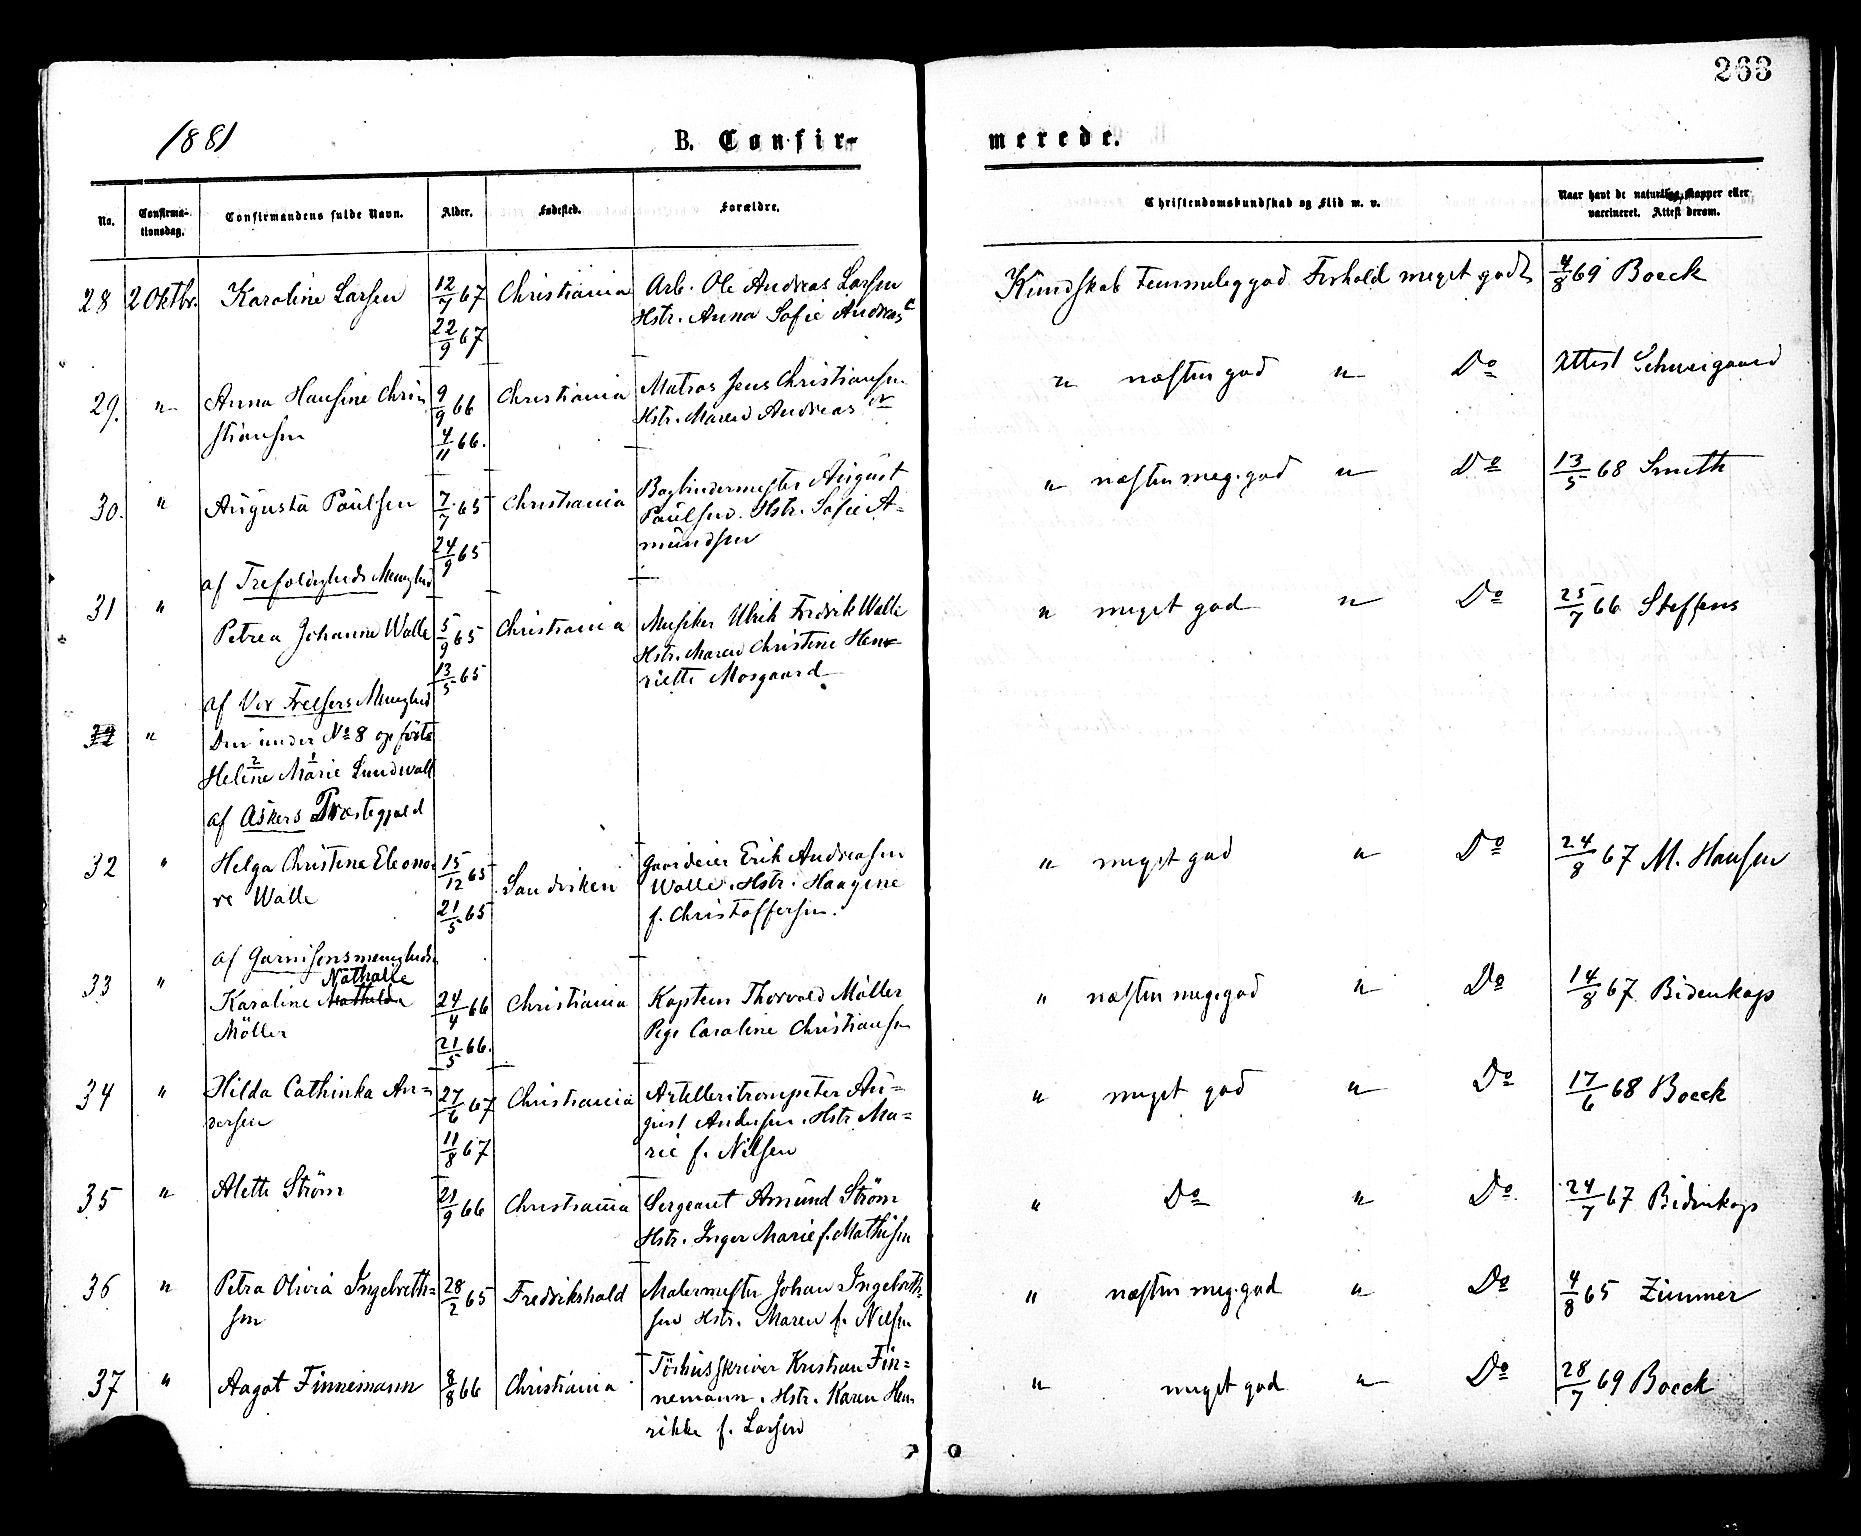 263
1881
B. Confir- merede.
No. Confirma-tionsdag. Confirmandens fulde Navn. Alder. Fødested. Forældre. Christendomskundskab og Flid m. v. Naar havt de naturlige Kopper eller vaccineret. Attest derom.
28 2 Oktbr. Karoline Larsen 12/7 67 Christiania Arb. Ole Andreas Larsen Kundskab Temmelig god Forhold meget godt 4/8 69 Boeck
22/9 67 Hstr. Anna Sofie Andreas
29. " Anna Hansine Chri- 9/9 66 Christiania Matros Jens Christiansen " næsten god " Do Attest Schweigaard
stiansen 4/11 66. Hstr. Maren Andreas
30. " Augusta Paulsen 7/7 65 Christiania Bogbindermester August " næsten meg. god " Do 13/5 68 Smith
24/9 65 Paulsen. Hstr. Sofie A-
mundsen
af Trefoldigheds Menighed
31 " Petrea Johanne Walle 5/9 65 Christiania Musiker Ulrik Fredrik Walle " meget god " Do 25/7 66 Steffens
13/5 65 Hstr. Maren Christine Hen-
riette Mosgaard
af Vor Frelsers Menighed
" Den under No 8 opførte
Helene Marie Lundwall
2 1
af Askers Præstegjæld
32 " Helga Christine Eleono- 15/12 65 Sandviken Gaardeier Erik Andreasen " meget god " Do 24/8 67 M. Hansen
re Walle 21/5 65 Walle. Hstr. Haagine
f. Christoffersen.
af Garnisonsmenigheds
Nathalie
33 " Karoline Mathilde 24/4 66 Christiania Kaptein Thorvald Møller " næsten meg. god " Do 14/8 67 Bidenkap
Møller 21/5 66. Pige Caroline Christiansen
34 " Hilda Cathinka An- 27/6 67 Christiania Artilleritrompeter Au- " meget god " Do 17/6 68 Boeck
dersen 11/8 67 gust Andersen. Hstr. Ma-
rie f. Nilsen
35 " Alette Strøm 21/9 66 Christiania Sergeant Amund Strøm " Do " Do 24/7 67 Bidenkap
Hstr. Inger Marie f. Mathisen
36 " Petra Olivia Ingebreth- 28/2 65 Fredrikshald Malermester Johan Ingebreth- " næsten meg. god " Do 4/8 65 Zimmer
sen sen Hstr. Maren f. Nilsen
37 " Aagot Finnemann 8/8 66 Christiania Kristian Fin- " meget god " Do 28/7 69 Boeck
nemann. Hstr. Karen Hen-
rikke f. Larsen